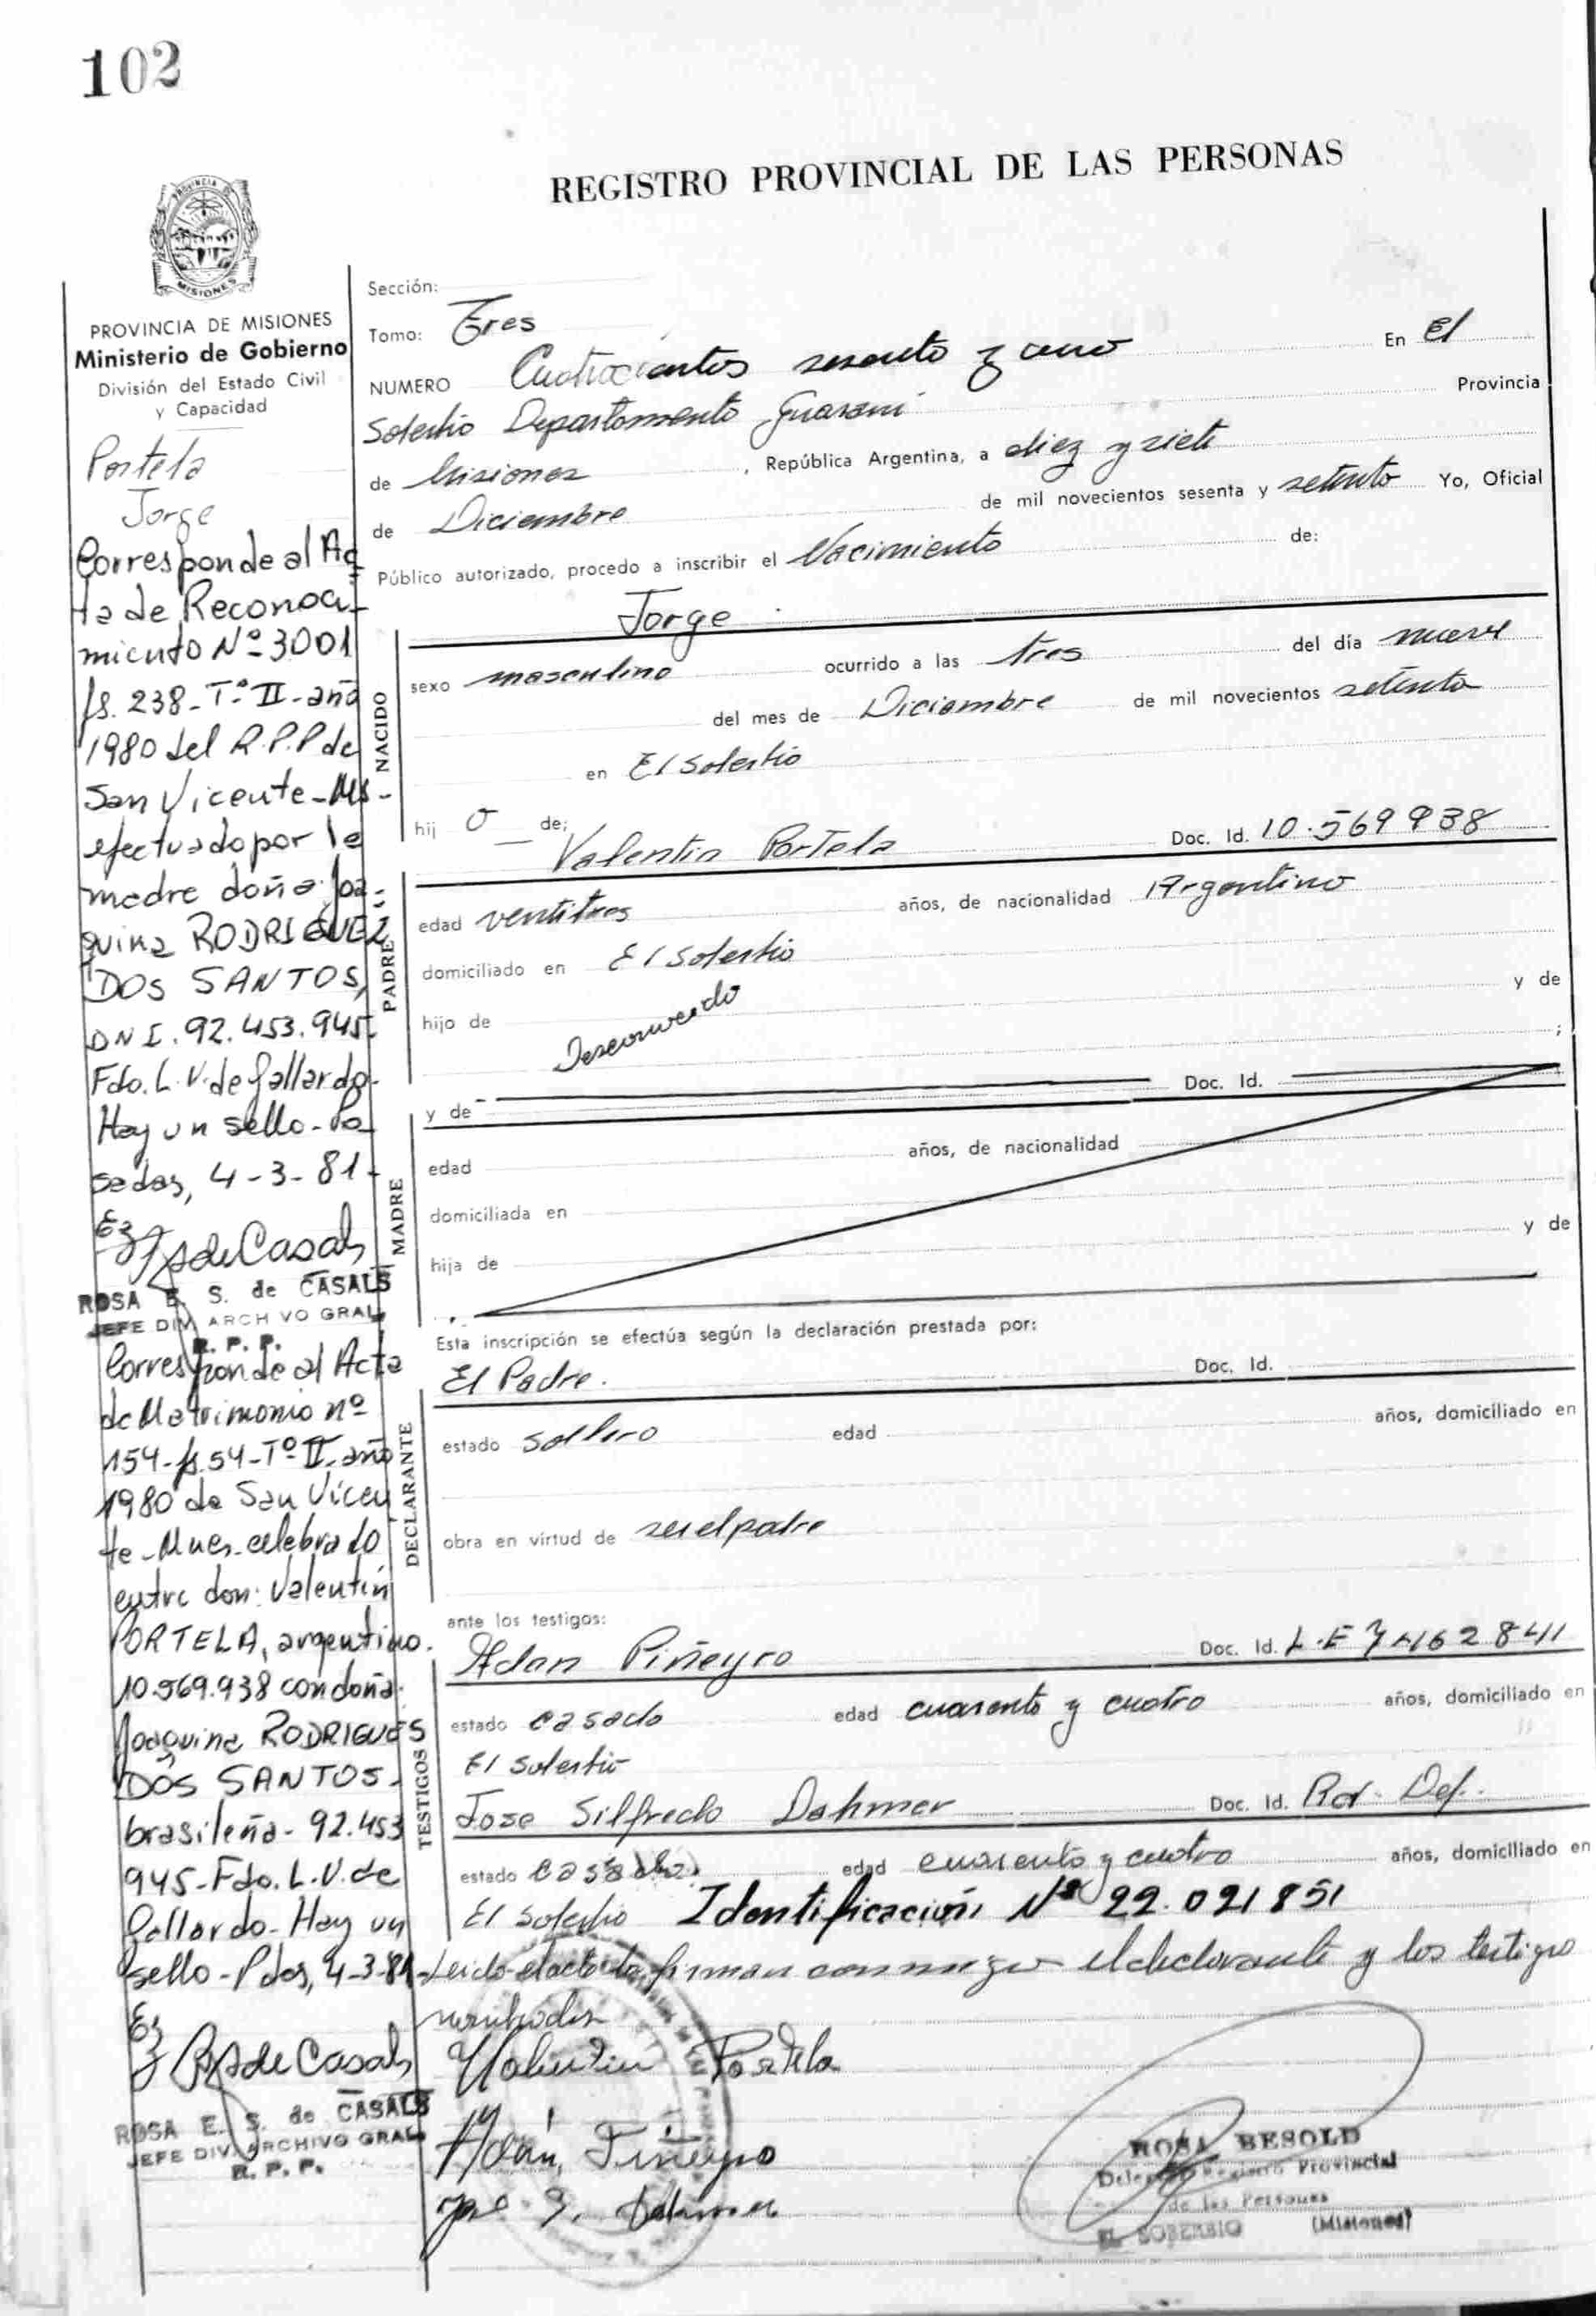 102
REGISTRO PROVINCIAL DE LAS PERSONAS
MISIONES
PROVINCIA DE MISIONES
Ministerio de Gobierno
División del Estado Civil
y Capacidad
Portela
Jorge
Corresponde al Ac
ta de Reconoci-
miento Nº 3001
fs. 238 - Tº II - año
1980 del R.P.P de
San Vicente - Ms -
efectuado por la
madre doña Joa-
quina RODRIGUEZ
DOS SANTOS,
DNI. 92.453.945.
Fdo. L. V. de Gallardo.
Hay un sello - Po
sadas, 4-3-81-
ROSA E. S. de CASALS
JEFE DIV. ARCHIVO GRAL.
R. P. P.
Corresponde al Acta
de Matrimonio nº
154 - fs. 54 - Tº II - año
1980 de San Vicen
te - Mnes - celebrado
entre don: Valentín
PORTELA, argentino.
10.569.938 con doña:
Joaquina RODRIGUES
DOS SANTOS -
brasileña - 92.453
945 - Fdo. L. V. de
Gallardo - Hay un
sello - Pdas, 4-3-81-
ROSA E. S. de CASALS
JEFE DIV. ARCHIVO GRAL.
R. P. P.
Sección:
Tomo: Tres
NUMERO Cuatrocientos sesenta y uno En El
Soberbio Departamento Guarani Provincia
de Misiones, República Argentina, a diez y siete
de Diciembre de mil novecientos sesenta y setenta Yo, Oficial
Público autorizado, procedo a inscribir el Nacimiento de:
Jorge
NACIDO
sexo masculino ocurrido a las tres del día nueve
del mes de Diciembre de mil novecientos setenta
en El Soberbio
hij o de: Valentin Portela Doc. Id. 10.569938
PADRE
edad ventitres años, de nacionalidad Argentino
domiciliado en El Soberbio
hijo de Desconocido y de
;
y de Doc. Id.
MADRE
edad años, de nacionalidad
domiciliada en
hija de y de
Esta inscripción se efectúa según la declaración prestada por:
El Padre. Doc. Id.
DECLARANTE
estado soltero edad años, domiciliado en
obra en virtud de ser el padre
ante los testigos:
Adan Piñeyro Doc. Id. L.E
TESTIGOS
estado casado edad cuarenta y cuatro años, domiciliado en
El Soberbio
Jose Silfredo Dahmer Doc. Id.
estado casado edad cuarenta y cuatro años, domiciliado en
El Soberbio Identificación Nº 22.021851
Leido el acta la firman conmigo el declarante y los testigos
nombrados
Valentin Portela
Adán Piñeyro
Jose S. Dahmer
ROSA BESOLD
Delegado Registro Provincial
de las Personas
EL SOBERBIO (Misiones)